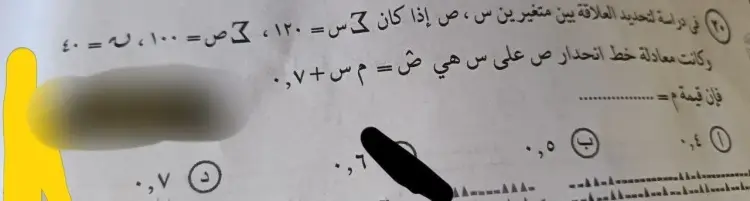 ٢٠ في دراسة لتحديد العلاقة بين متغيرين س ، ص إذا كان ∑س = ١٢٠ ، ∑ص = ١٠٠ ، ن = ٤٠
وكانت معادلة خط انحدار ص على س هي صَ = م س + ٠,٧
فإن قيمة م = ................
أ ٠,٤
ب ٠,٥
٠,٦
د ٠,٧